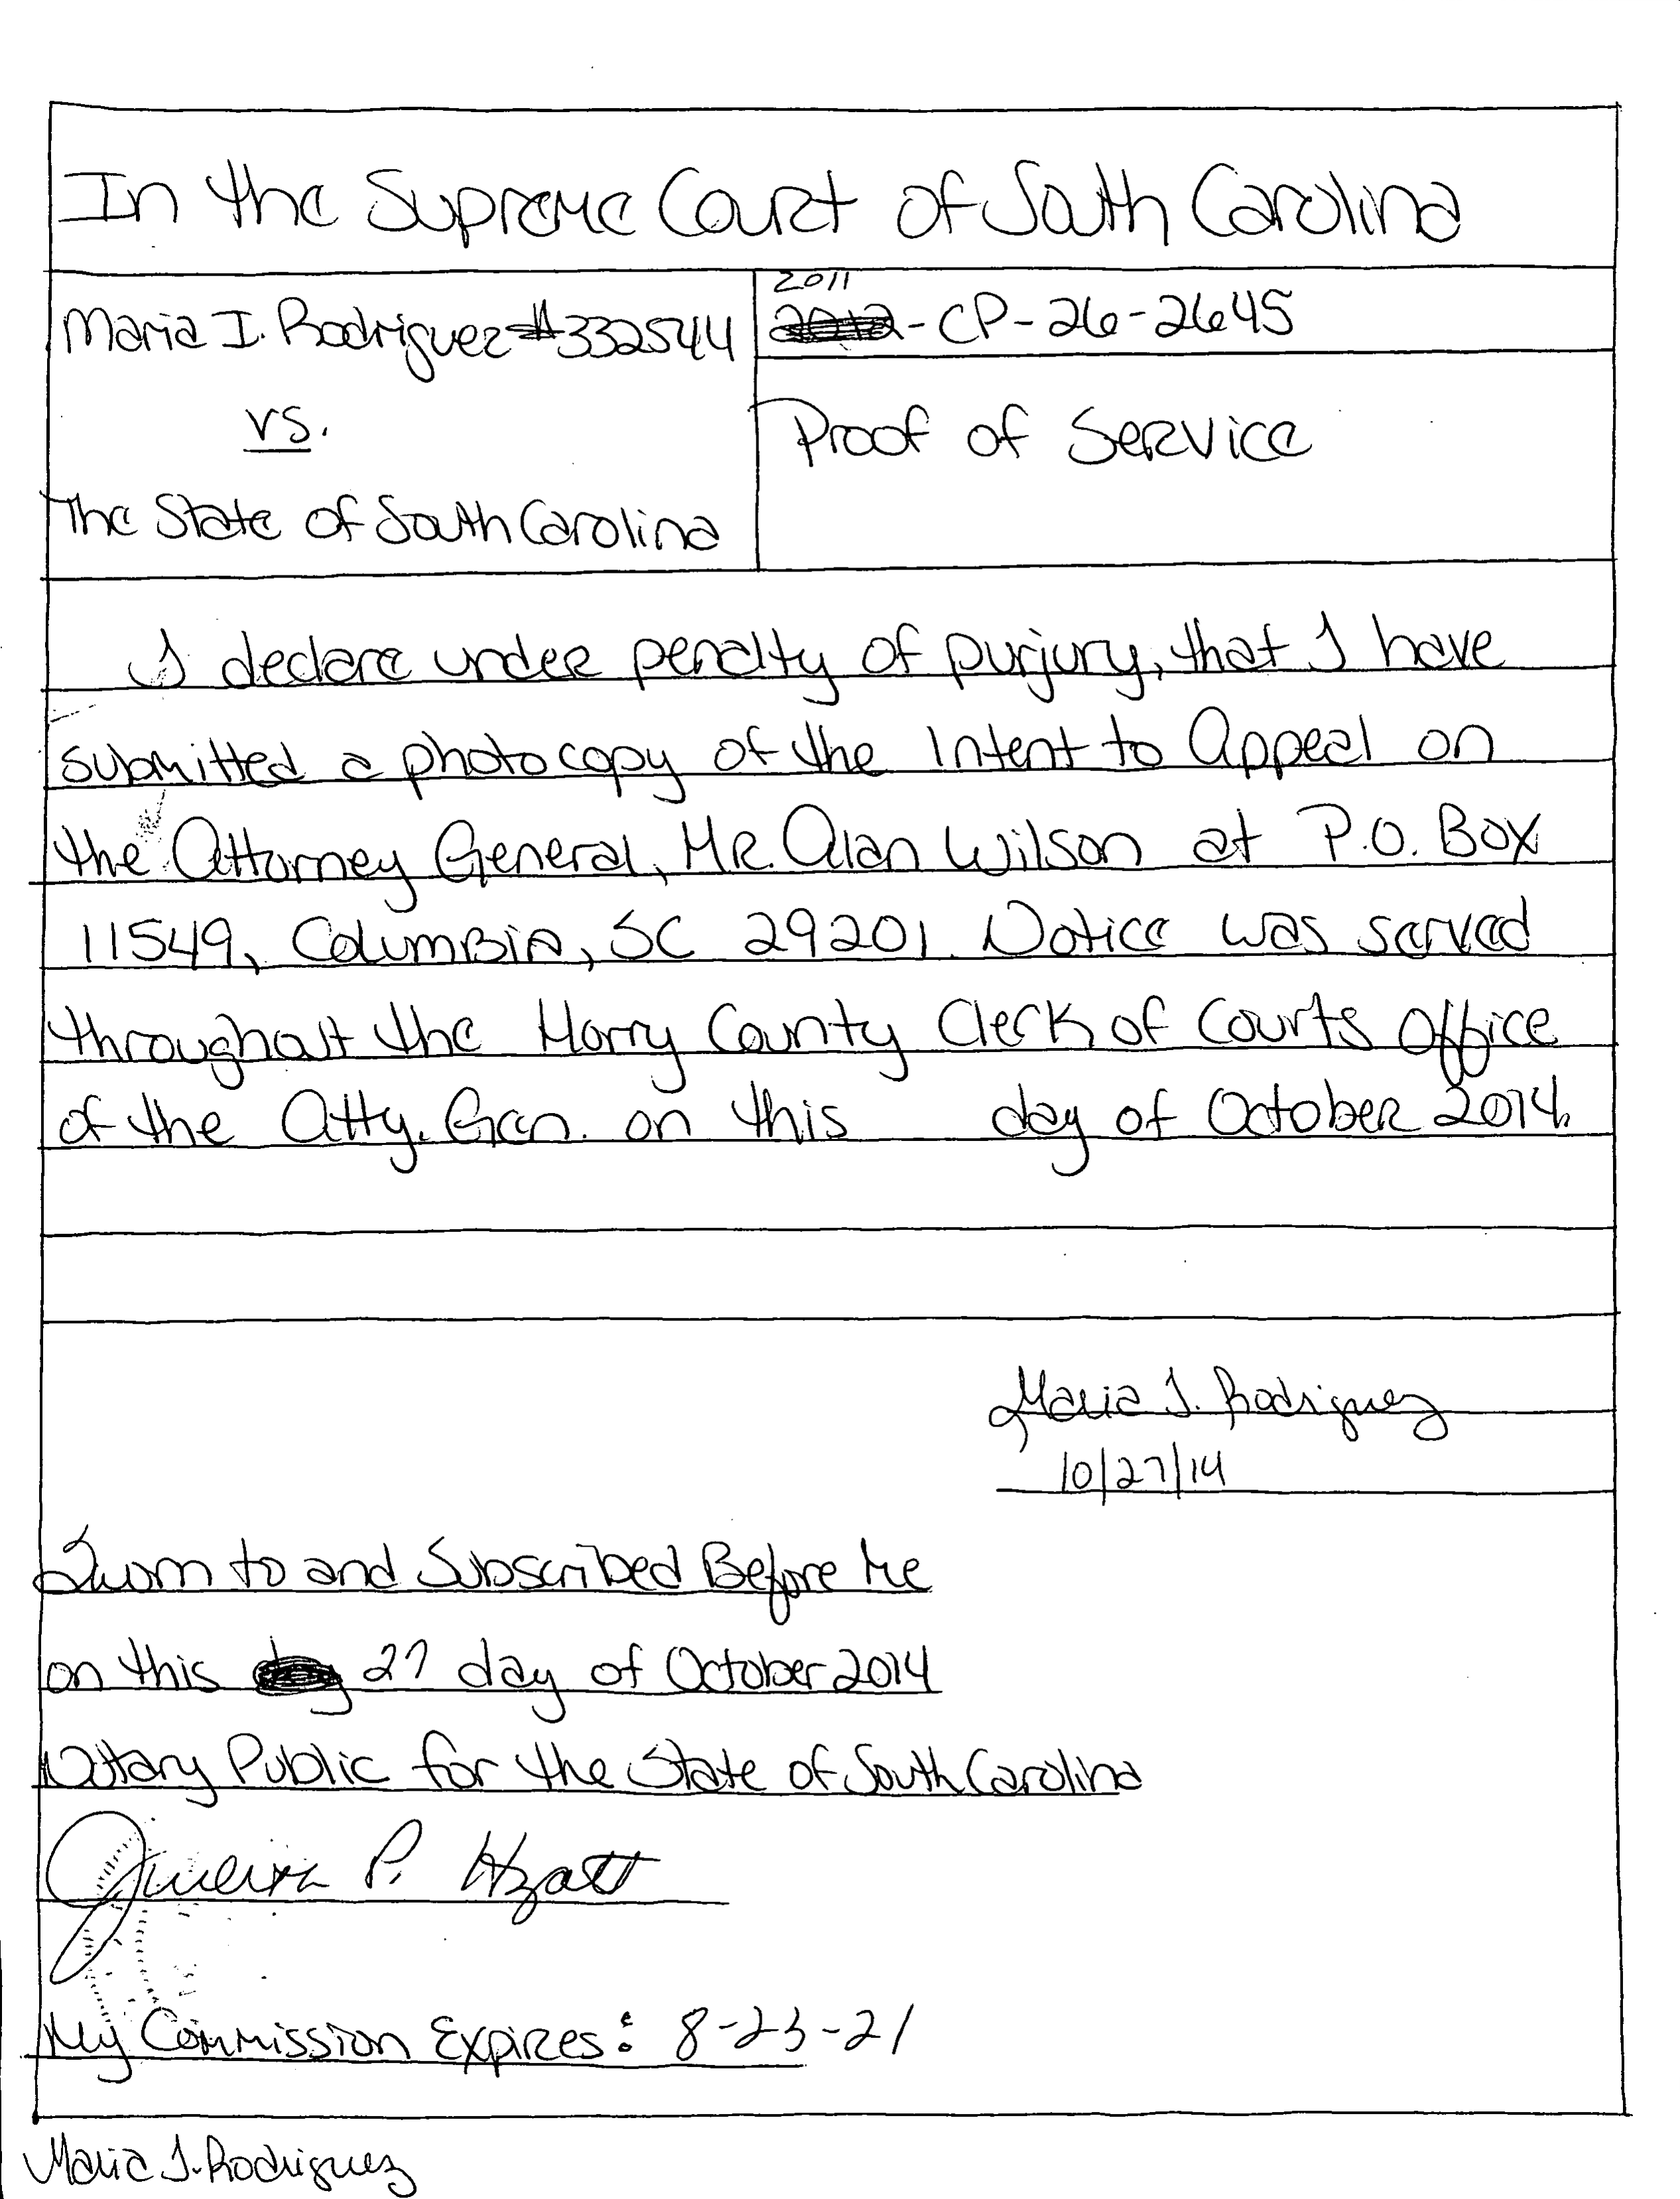 In the Supreme Court of South Carolina
Maria I. Rodriguez #332544
vs.
The State of South Carolina
2011
2012-CP-26-2645
Proof of Service
I declare under penalty of purjury, that I have
submitted a photocopy of the Intent to Appeal on
the Attorney General, Mr. Alan Wilson at P.O. Box
11549, Columbia, SC 29201. Notice was served
throughout the Horry County Clerk of Courts Office
of the Atty. Gen. on this day of October 2014.
Maria I. Rodriguez
10/27/14
Sworn to and Subscribed Before Me
on this 27 day of October 2014
Notary Public for the State of South Carolina
P. Hyatt
My Commission Expires: 8-23-21
Maria I. Rodriguez